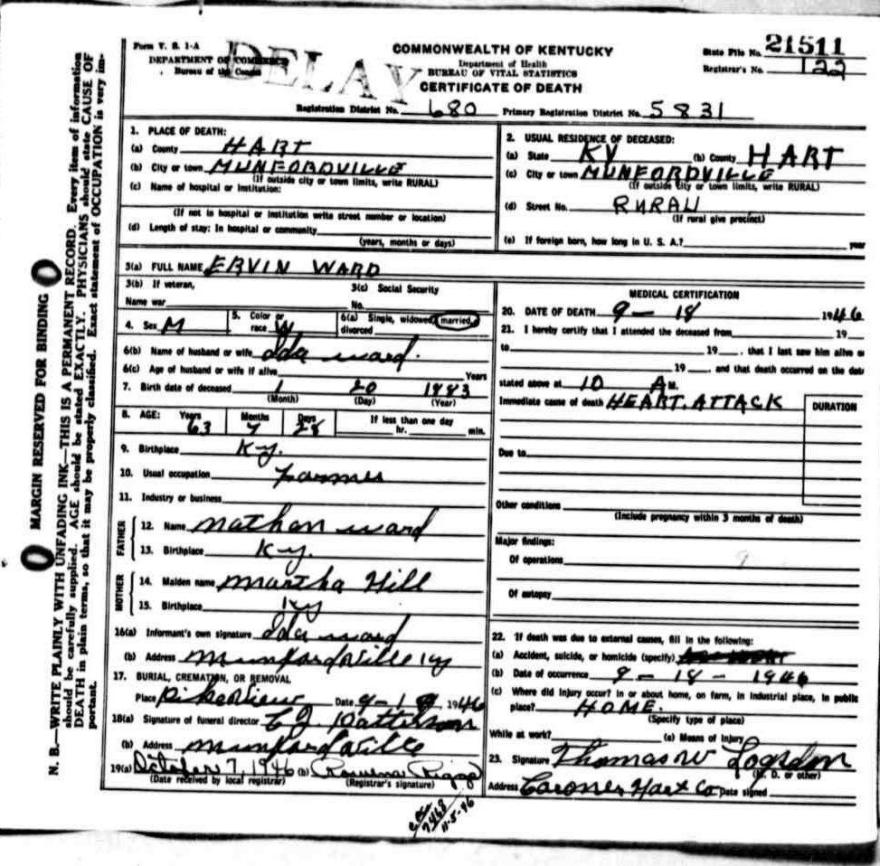 Form V. S. 1-A
DEPARTMENT OF COMMERCE
Bureau of the Census
DELAY
COMMONWEALTH OF KENTUCKY
Department of Health
BUREAU OF VITAL STATISTICS
CERTIFICATE OF DEATH
State File No. 21511
Registrar's No. 122
Registration District No. 680 Primary Registration District No. 5831
1. PLACE OF DEATH:
(a) County HART
(b) City or town MUNFORDVILLE
(If outside city or town limits, write RURAL)
(c) Name of hospital or institution:
(If not in hospital or institution write street number or location)
(d) Length of stay: In hospital or community
(years, months or days)
2. USUAL RESIDENCE OF DECEASED:
(a) State KY (b) County HART
(c) City or town MUNFORDVILLE
(If outside city or town limits, write RURAL)
(d) Street No. RURAL
(If rural give precinct)
(e) If foreign born, how long in U. S. A.? year
3(a) FULL NAME ERVIN WARD
3(b) If veteran,
Name war
3(c) Social Security
No.
4. Sex M
5. Color or
race W
6(a) Single, widowed, married,
divorced
6(b) Name of husband or wife Ida Ward.
6(c) Age of husband or wife if alive Years
7. Birth date of deceased 1 20 1883
(Month) (Day) (Year)
8. AGE: Years Months Days If less than one day
63 7 28 hr. min.
9. Birthplace Ky.
10. Usual occupation Farmer
11. Industry or business
FATHER
12. Name Nathan Ward
13. Birthplace Ky.
MOTHER
14. Maiden name Martha Hill
15. Birthplace Ky
16(a) Informant's own signature Ida Ward
(b) Address Munfordville Ky
17. BURIAL, CREMATION, OR REMOVAL
Place Pikeview Date 9-19 1946
18(a) Signature of funeral director Patterson
(b) Address Munfordville
19(a) October 7, 1946 (b)
(Date received by local registrar) (Registrar's signature)
MEDICAL CERTIFICATION
20. DATE OF DEATH 9 - 18 1946
21. I hereby certify that I attended the deceased from 19
to 19 , that I last saw him alive on
19 , and that death occurred on the date
stated above at 10 A M.
Immediate cause of death HEART ATTACK
DURATION
Due to
Other conditions
(Include pregnancy within 3 months of death)
Major findings:
Of operations
9
Of autopsy
22. If death was due to external causes, fill in the following:
(a) Accident, suicide, or homicide (specify)
(b) Date of occurrence 9 - 18 - 1946
(c) Where did injury occur? In or about home, on farm, in industrial place, in public
place? HOME.
(Specify type of place)
While at work? (e) Means of Injury
23. Signature Thomas W Logsdon
(M. D. or other)
Address Hart Co Date signed
11-5-46
MARGIN RESERVED FOR BINDING
N. B.—WRITE PLAINLY WITH UNFADING INK—THIS IS A PERMANENT RECORD. Every item of information
should be carefully supplied. AGE should be stated EXACTLY. PHYSICIANS should state CAUSE OF
DEATH in plain terms, so that it may be properly classified. Exact statement of OCCUPATION is very im-
portant.